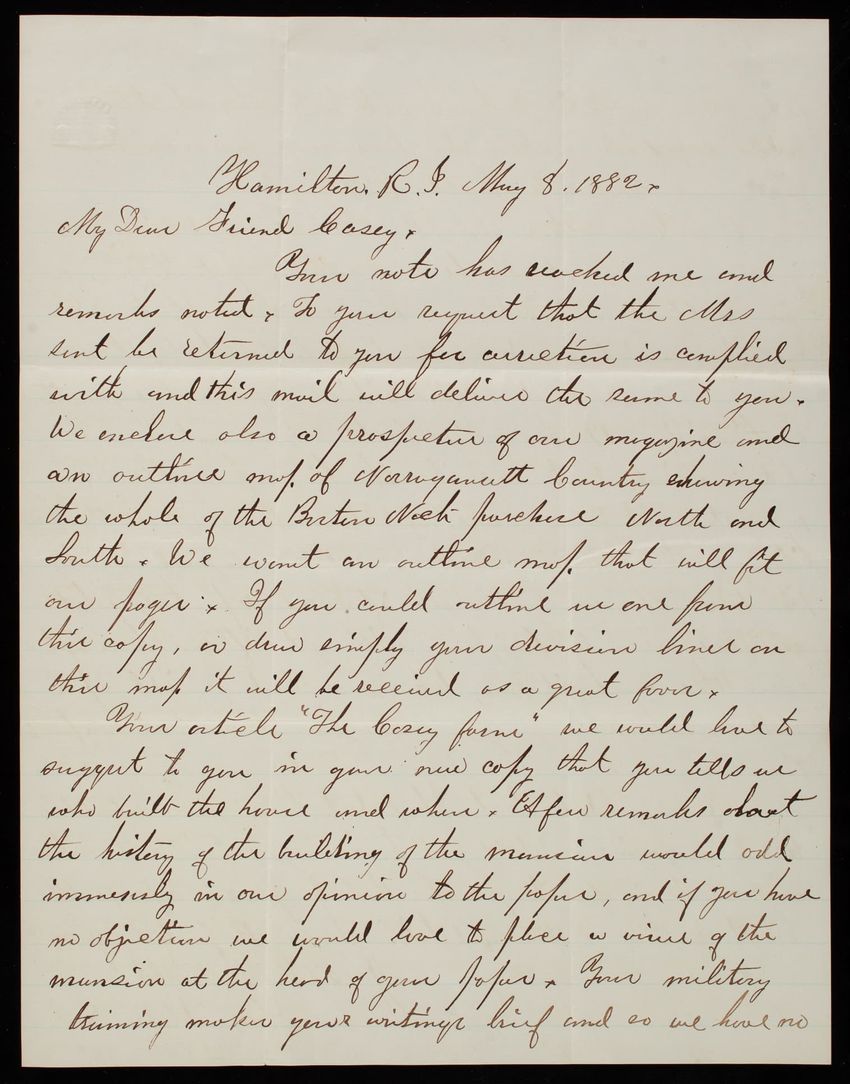 Hamilton. R.I. May 8. 1882.
My Dear Friend Casey.
Your note has reached me and
remarks noted. To your request that the Mss
sent be returned to you for correction is complied
with and this mail will deliver the same to you.
We enclose also a prospectus of our magazine and
an outline map of Narragansett Country showing
the whole of the Boston Neck purchase North and
South. We want an outline map that will fit
our pages. If you could outline us one from
this copy, or draw simply your division lines on
this map it will be received as a great favor.
Your article "The Casey farm" we would love to
suggest to you in your new copy that you tells us
who built the house and when. A few remarks about
the history of the building of the mansion would add
immensely in our opinion to the paper, and if you have
no objection we would love to place a view of the
mansion at the head of your paper. Your military
training makes your writings brief and so we have no